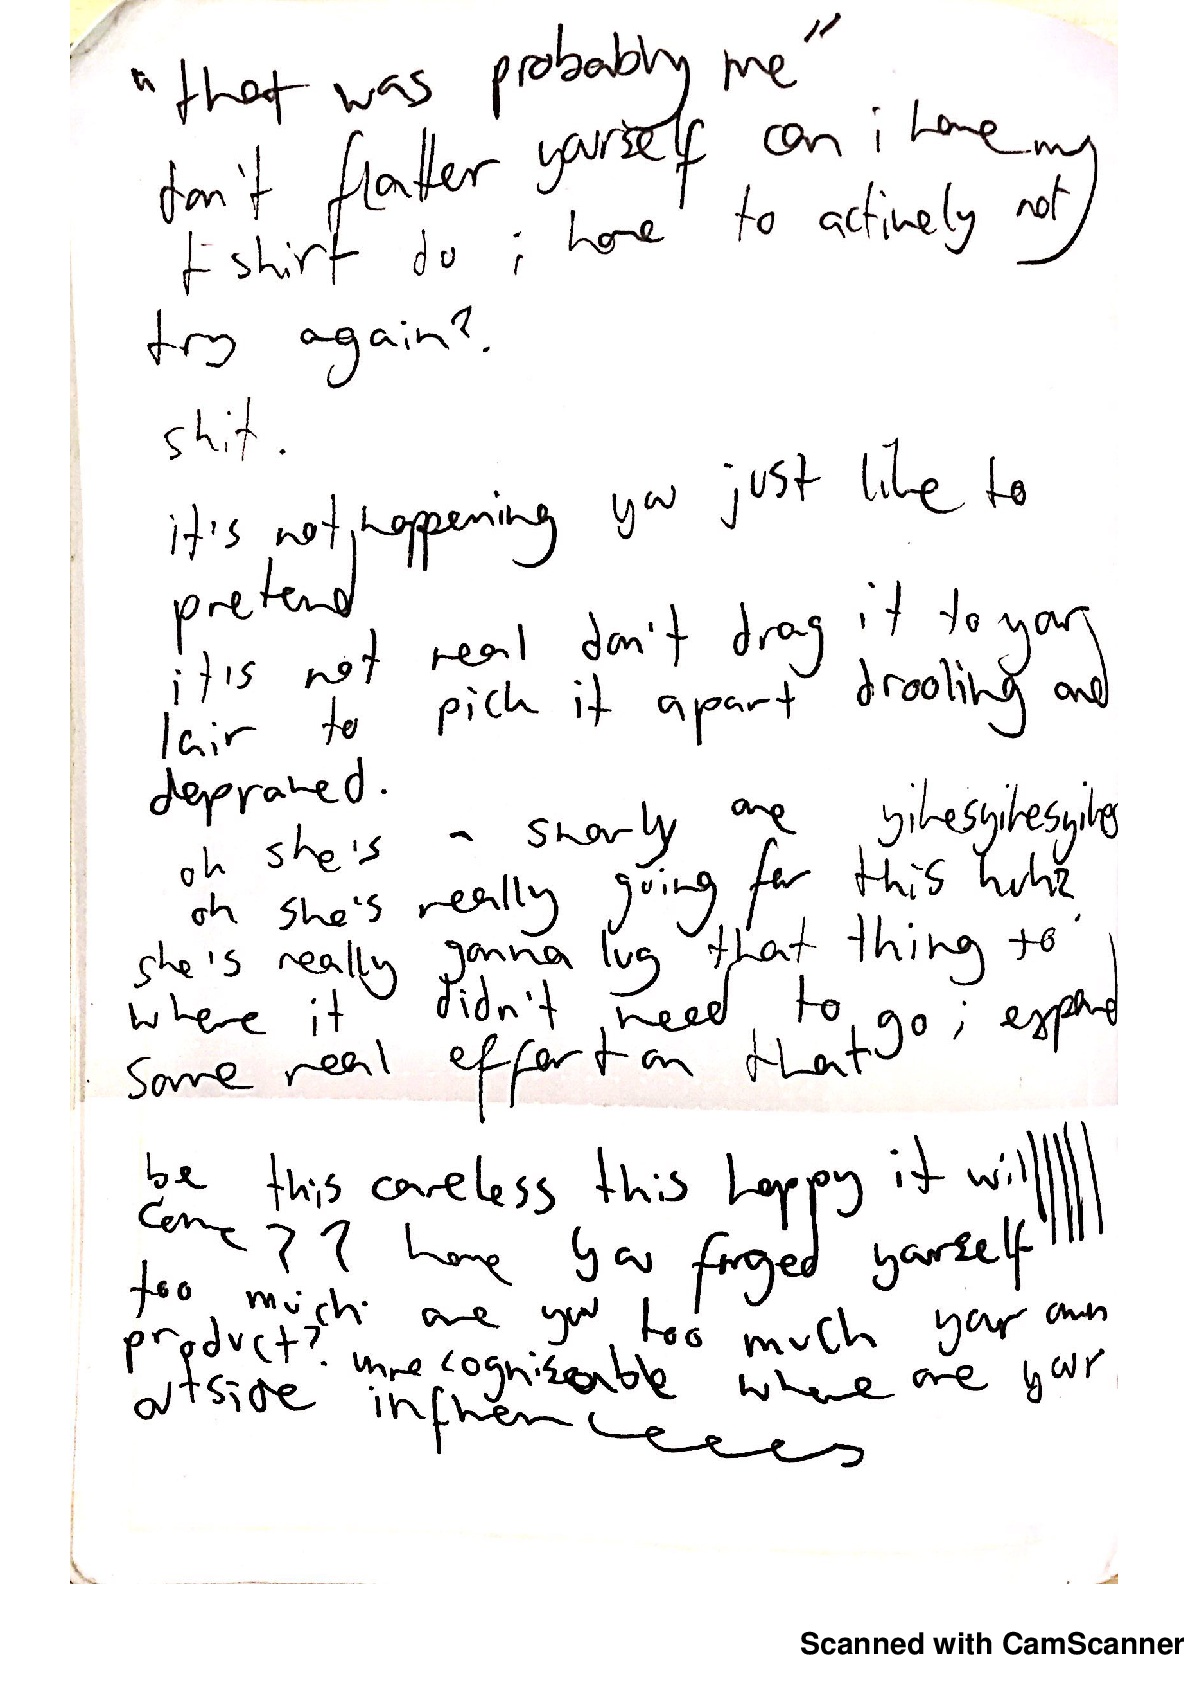 "that was probably me"
don't flatter yourself can i have my
t-shirt do i have to actively not
try again?
shit.
it's not happening you just like to
pretend
it's not real don't drag it to your
lair to pick it apart drooling and
depraved.
oh she's a snarly one yikesyikesyikes
oh she's really going for this huh?
she's really gonna lug that thing to
where it didn't need to go i expend
some real effort on that
be this careless this happy it will
come?? have you forged yourself
too much are you too much your own
product? unrecogniseable where are your
outside influenceeees
Scanned with CamScanner